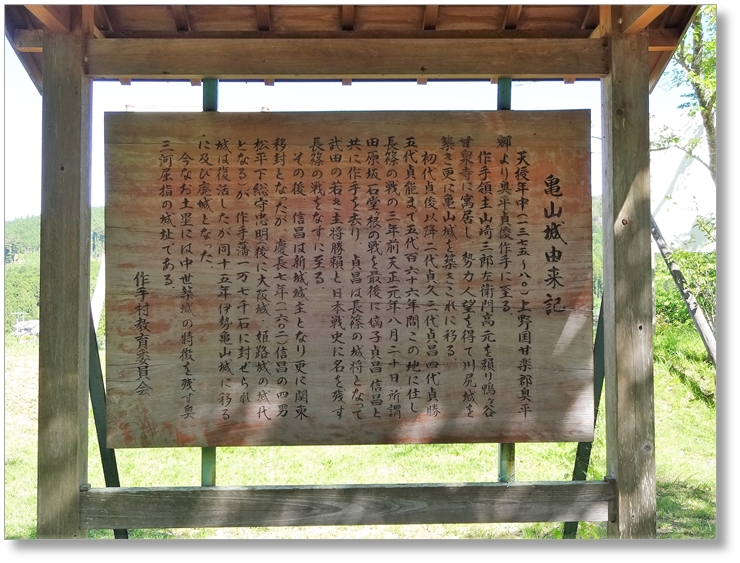 亀山城由来記
天授年中(一三七五~八〇)上野国甘楽郡奥平
郷より奥平貞俊作手に至る
作手領主山崎三郎左衛門高元を頼り鴨ヶ谷
甘泉寺に寓居し 勢力人望を得て川尻城を
築き更に亀山城を築きこれに移る
初代貞俊以降二代貞久三代貞昌四代貞勝
五代貞能まで五代百六十六年間この地に住し
長篠の戦の三年前天正元年八月二十日所謂
田原坂石堂根の戦を最後に 貞昌 信昌と
共に作手を去り 貞昌は長篠の城将となって
武田の若き主将勝頼と日本戦史に名を残す
長篠の戦をなすに至る
その後 信昌は新城城主となり更に関東
移封となったが 慶長七年(一六〇二)信昌の四男
松平下総守忠明(後に大阪城・姫路城の城代
となる)が 作手藩一万七千石に封ぜられ
城は復活したが同十五年伊勢亀山城に移る
に及び廃城となった
今なお土塁には中世築城の特徴を残す奥
三河屈指の城址である
作手村教育委員会